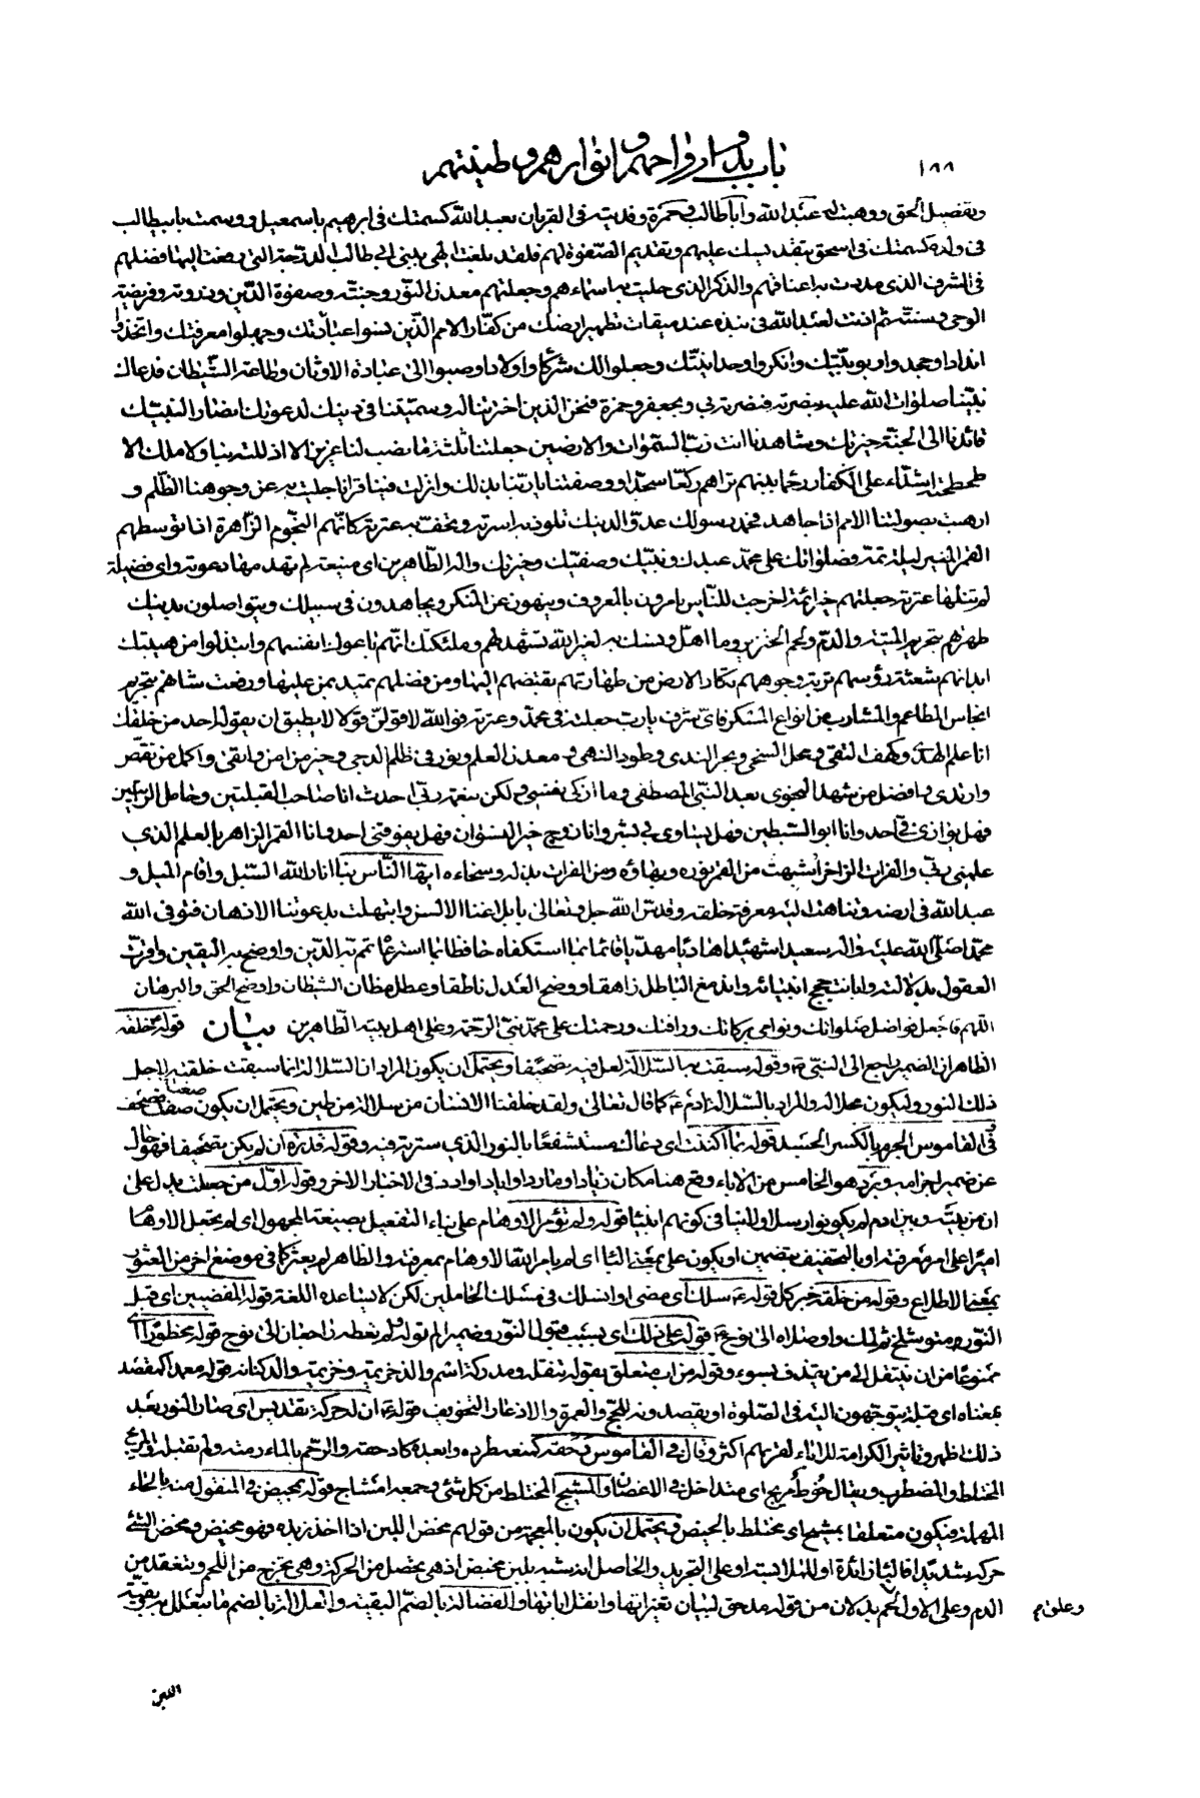 ١٨٨
باب بدو ارواحهم و انوارهم و طينتهم
وبفضيل الحق ووهبت له عبد الله وأبا طالب وحمزة وفديته في القربان بعبد الله كسمتك في ابرهيم باسمعيل ووسمت بابيطالب
في ولده كسمتك في اسحق بتقديسك عليهم وتقديم الصفوة لهم فلقد بلغت الهي ببني ابي طالب الدرجة التي رفعت اليها فضلهم
في الشرف الذي مددت به اعناقهم والذكر الذي حليت به اسماءهم وجعلتهم معدن النور وجنته وصفوة الدين وذروته وفريضة
الوحي وسنته ثم اذنت لعبد الله في نبذه عند ميقات تطهير ارضك من كفار الامم الذين نسوا عبادتك وجهلوا معرفتك واتخذوا
اندادا وجحدوا ربوبيتك وانكروا وحدانيتك وجعلوا لك شركاء واولادا وصبوا الى عبادة الاوثان وطاعة الشيطان فدعاك
نبينا صلوات الله عليه بنصرته فنصرته بي وبجعفر وحمزة فنحن الذين اخترتنا له وسميتنا في دينك لدعوتك انصارا لنبيك
قائدنا الى الجنة خيرتك وشاهدنا انت رب السموات والارضين جعلتنا ثلثة ما نصب لنا عزيز الا اذللته بنا ولا ملك الا
طحطحته اشداء على الكفار رحماء بينهم تراهم ركعا سجدا ووصفتنا يا ربنا بذلك وانزلت فينا قرآنا جليت به عن وجوهنا الظلم و
ارهبت بصولتنا الامم اذا جاهد محمد رسولك عدوا لدينك تلوذ به اسرته وتحف به عترته كانهم النجوم الزاهرة اذا توسطهم
القمر المنير ليلة تمه فصلواتك على محمد عبدك ونبيك وصفيك وخيرتك وآله الطاهرين اي منيعة لم تهدمها دعوته واي فضيلة
لم تنلها عترته جعلتهم خير ائمة اخرجت للناس يأمرون بالمعروف وينهون عن المنكر ويجاهدون في سبيلك ويتواصلون بدينك
طهرتهم بتحريم الميتة والدم ولحم الخنزير وما اهل ونسك به لغير الله تشهد لهم وملئكتك انهم باعوك انفسهم وابتذلوا من هيبتك
ابدانهم شعثة رؤسهم تربة وجوههم تكاد الارض من طهارتهم تقبضهم اليها ومن فضلهم تميد بمن عليها ورفعت شانهم بتحريم
انجاس المطاعم والمشارب من انواع المسكر فاي شرف يا رب جعلته في محمد وعترته فوالله لاقولن قولا لا يطيق ان يقوله احد من خلقك
انا علم الهدى وكهف التقى ومحل السخي وبحر الندى وطود النهى ومعدن العلم ونور في ظلم الدجى وخير من امن واتقى واكمل من تقمص
وارتدى وافضل من شهد النجوى بعد النبي المصطفى وما ازكي نفسي ولكن بنعمة ربي احدث انا صاحب القبلتين وحامل الرايتين
فهل يوازي في احد وانا ابو السبطين فهل يساوي بي بشر وانا زوج خير النسوان فهل يفوقني احد وانا القمر الزاهر بالعلم الذي
علمني ربي والفرات الزاخر اشبهت من القمر نوره وبهاؤه ومن الفرات بذله وسخاءه ايها الناس بنا انار الله السبل واقام الميل و
عبد الله في ارضه وتناهت اليه معرفة خلقه وقدس الله جل وتعالى بابلاغنا الالسن وابتهلت بدعوتنا الاذهان فتوفي الله
محمدا صلى الله عليه وآله سعيدا شهيدا هاديا مهديا قائما بما استكفاه حافظا لما استرعاه تمم به الدين واوضح به اليقين واقرت
العقول بدلالته وابانت حجج انبيائه واندمغ الباطل زاهقا ووضح العدل ناطقا وعطل مظان الشيطان واوضح الحق والبرهان
اللهم فاجعل فواضل صلواتك ونوامي بركاتك ورافتك ورحمتك على محمد نبي الرحمة وعلى اهل بيته الطاهرين بيان قوله خلقه
الظاهر ان الضمير راجع الى النبي ص وقوله سبقت به السلالة لعل فيه تصحيفا ويحتمل ان يكون المراد ان السلالة انما سبقت خلقته لاجل
ذلك النور وليكون محلا له والمراد بالسلالة ادم ع كما قال تعالى ولقد خلقنا الانسان من سلالة من طين ويحتمل ان يكون
في القاموس الجرم بالكسر الجسد قوله لما اكننت اي دعاك مستشفعا بالنور الذي سترته فيه وقوله قدره ان لم يكن تصحيفا فهو حال
عن ضمير اجرامه وبرد هو الخامس من الاباء وقع هنا مكان
ان من بينه وبين ادم لم يكونوا رسلا ولا ينافي كونهم انبياء قوله ولم تؤمر الاوهام على بناء التفعيل بصيغة المجهول اي لم يجعل الاوهام
اميرا على امر معرفته او بالتخفيف بتضمين او يكون على بمعنى الباء اي لم يامر الله الاوهام بمعرفته والظاهر لم يعثر كما في موضع اخر من العثور
بمعنى الاطلاع وقوله من خلقه خبر كل قوله ع سلك اي مضى او انسلك في مسلك الحاملين لكن لا يساعده اللغة قوله المفضيين اي قبل
النور من متوشلخ ثم لمك واوصلاه الى نوح ع قوله على ذلك اي بسبب قبول النور وضمير الم توله ولم تعطه راجعان الى نوح قوله محظورا اي
ممنوعا من ان ينتقل الى من يقذف بسوء وقوله من اب متعلق بقوله تنقله ومدركة اسم والد خزيمة وخزيمة والد كنانة قوله معدا كمقصد
بمعناه اي قبلة يتوجهون اليه في الصلوة او يقصدونه للحج والعمرة والاذعار التخويف قوله ع ان له حركة تقديس اي صار النور بعد
ذلك ظهر وتاثير الكرامة للاباء لقربهم اكثر وقال في القاموس دحقه كمنعه طرده وابعده كادحقه والرحم بالماء رمته ولم تقبله والمريج
المختلط والمضطرب ويقال خوط مريج اي متداخل في الاغصان والمشيج المختلط من كل شئ وجمعه امشاج قوله بمحيض في المنقول منه بالحاء
المهملة فيكون متعلقا بمشيج اي مختلط بالحيض ويحتمل ان يكون بالمعجمة من قولهم مخض اللبن اذا اخذ زبده فهو مخيض ومخض الشئ
حركه شديدا فالباء زائدة او للملابسة او على التجريد والحاصل انه شبه بلبن مخيض اذ هي تحصل من الحركة وهي يخرج من اللحم وتنعقد من
الدم وعلى الاول لحم بدلان من قوله مدحق لبيان تغيراتها وانتقالاتها والفضالة بالضم البقية والعلالة بالضم ما يتعلل به بقية
وعلق م
اللبن